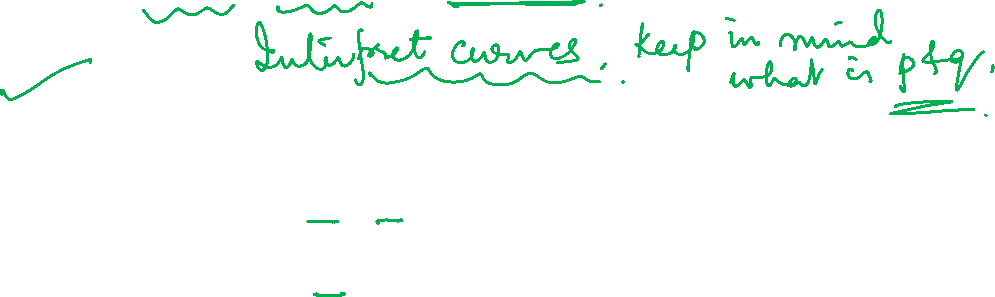 Interpret curves, keep in mind
what is p&q.